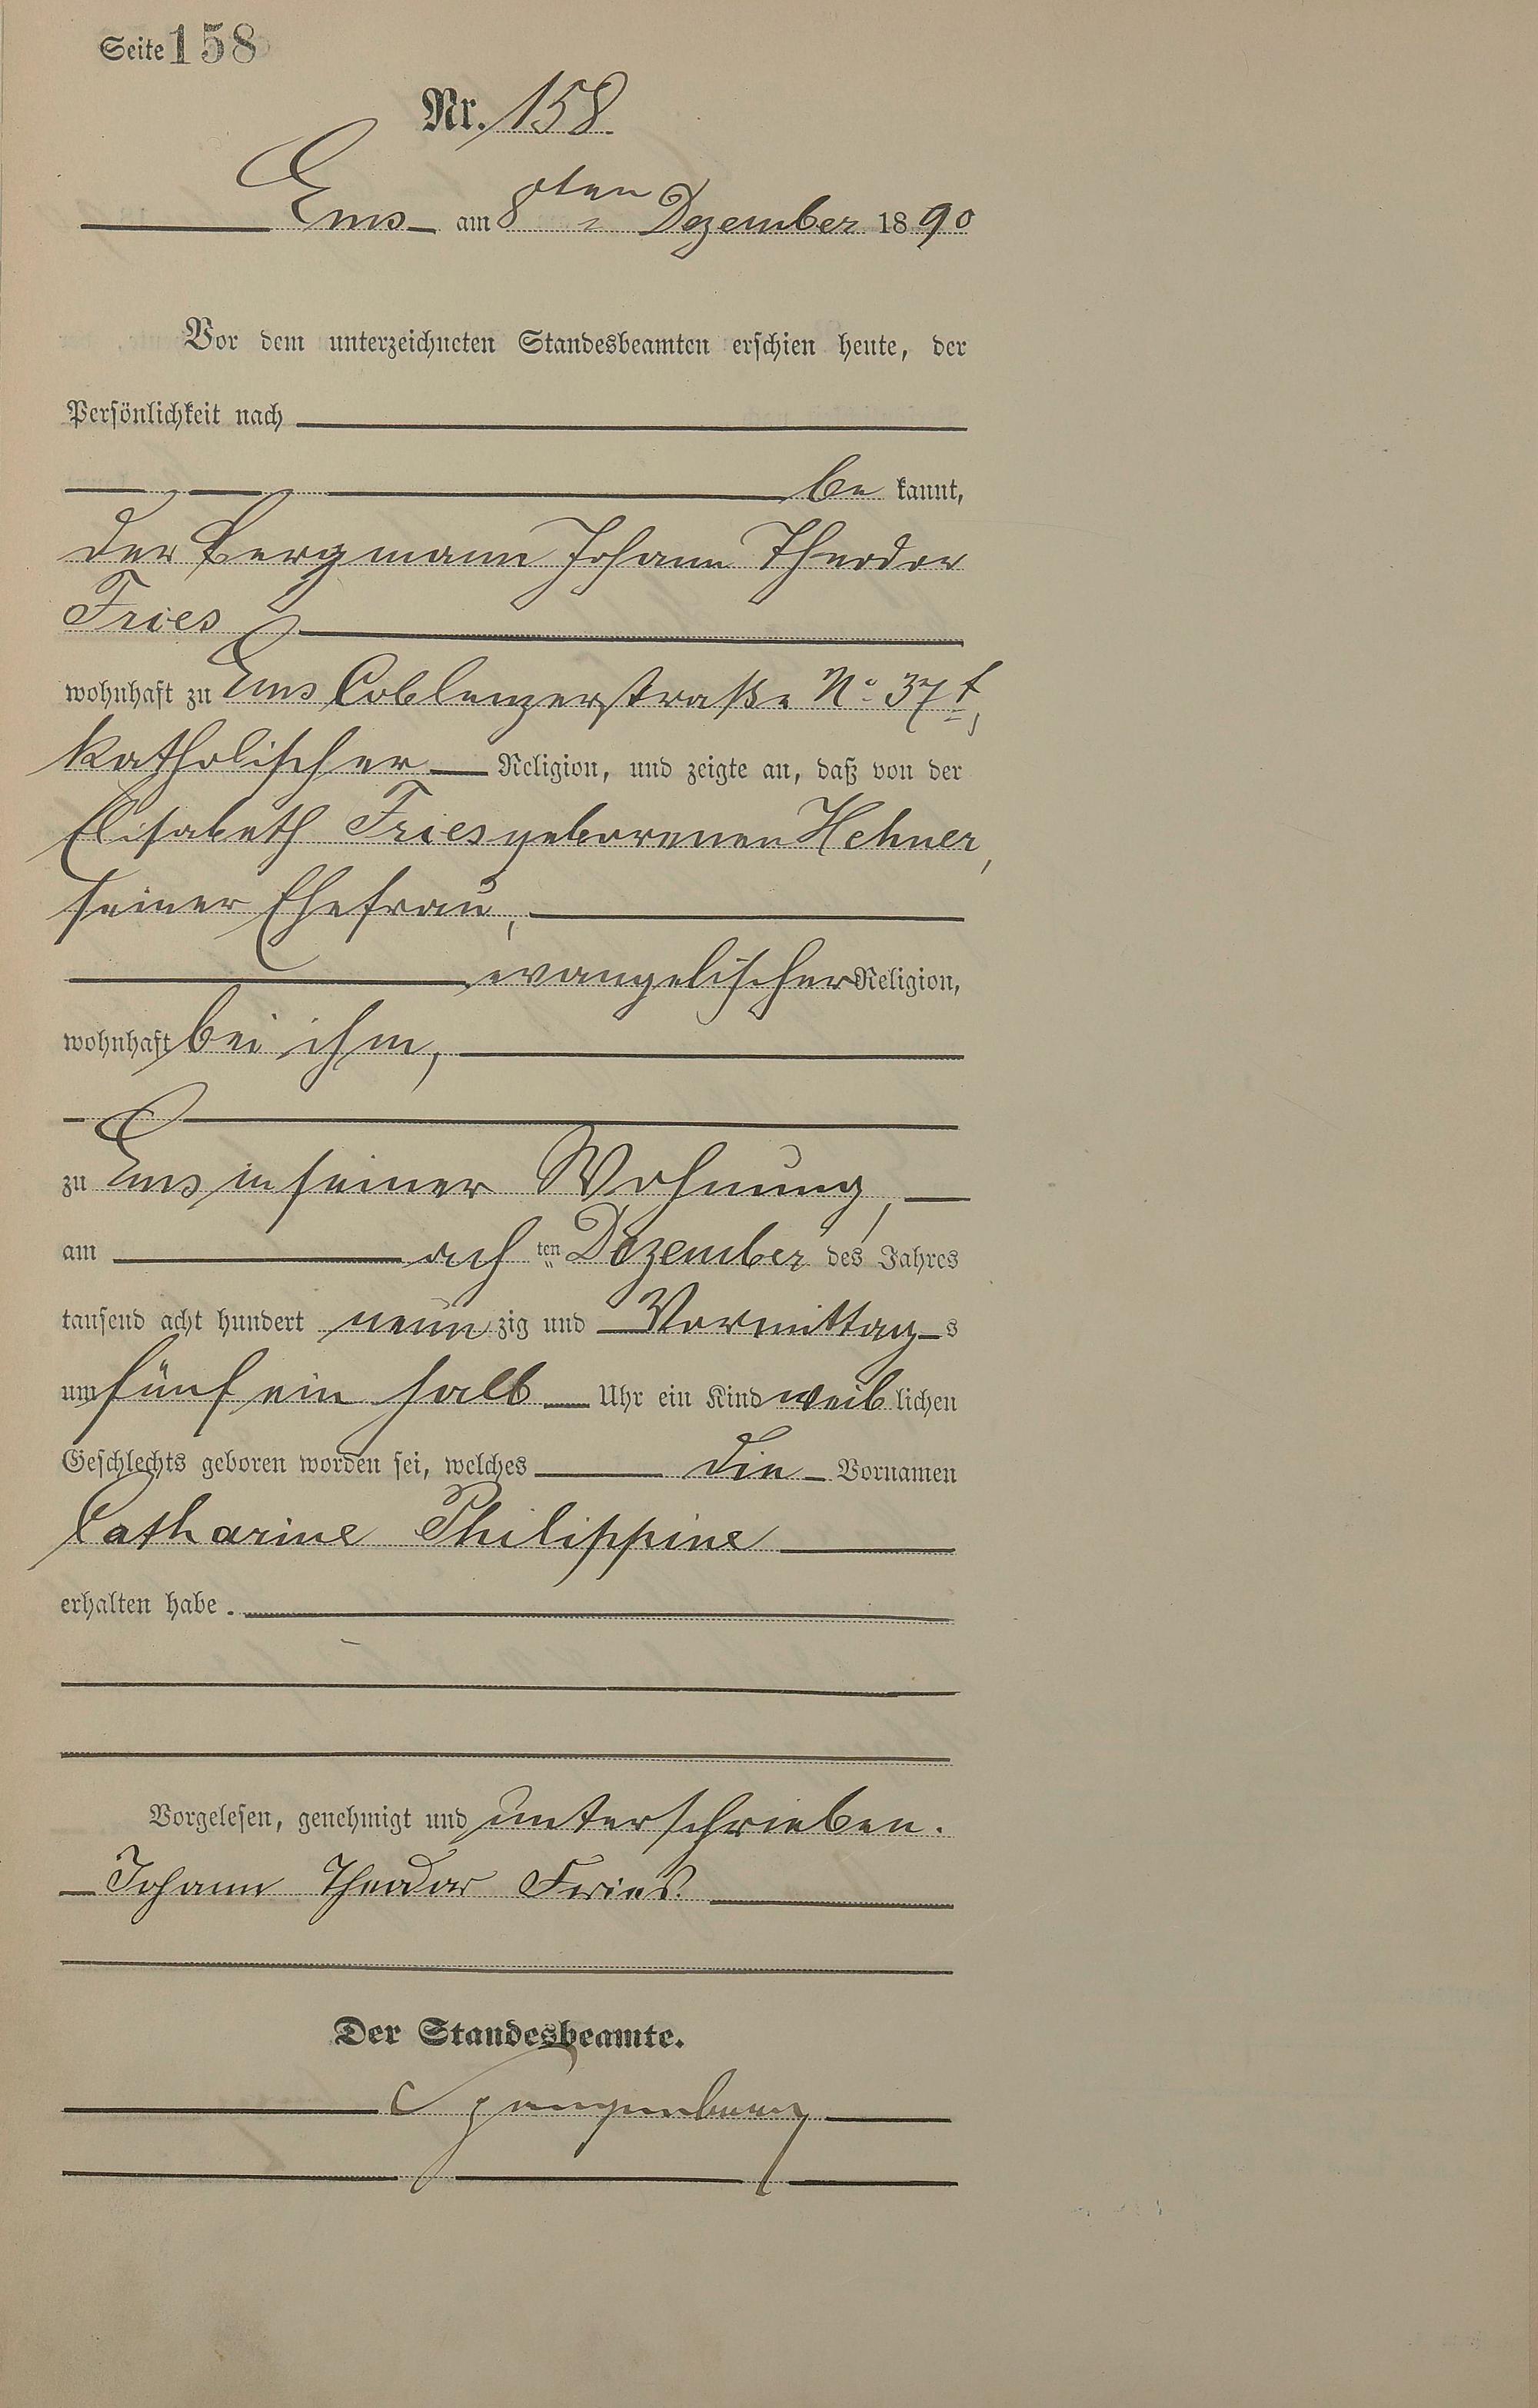 Seite 158
Nr. 158.
Ems am 8ten Dezember 1890
Vor dem unterzeichneten Standesbeamten erschien heute, der
Persönlichkeit nach
be kannt,
der Bergmann Johann Theodor
Fries
wohnhaft zu Ems Coblenzerstraße No. 37f,
katholischer Religion, und zeigte an, daß von der
Elisabeth Fries geborenen Hehner,
seiner Ehefrau,
evangelischer Religion,
wohnhaft bei ihm,
zu Ems in seiner Wohnung,
am ach ten Dezember des Jahres
tausend acht hundert neun zig und Vormittag s
um fünf ein halb Uhr ein Kind weib lichen
Geschlechts geboren worden sei, welches die Vornamen
Catharine Philippine
erhalten habe.
Vorgelesen, genehmigt und unterschrieben.
Johann Theodor Fries.
Der Standesbeamte.